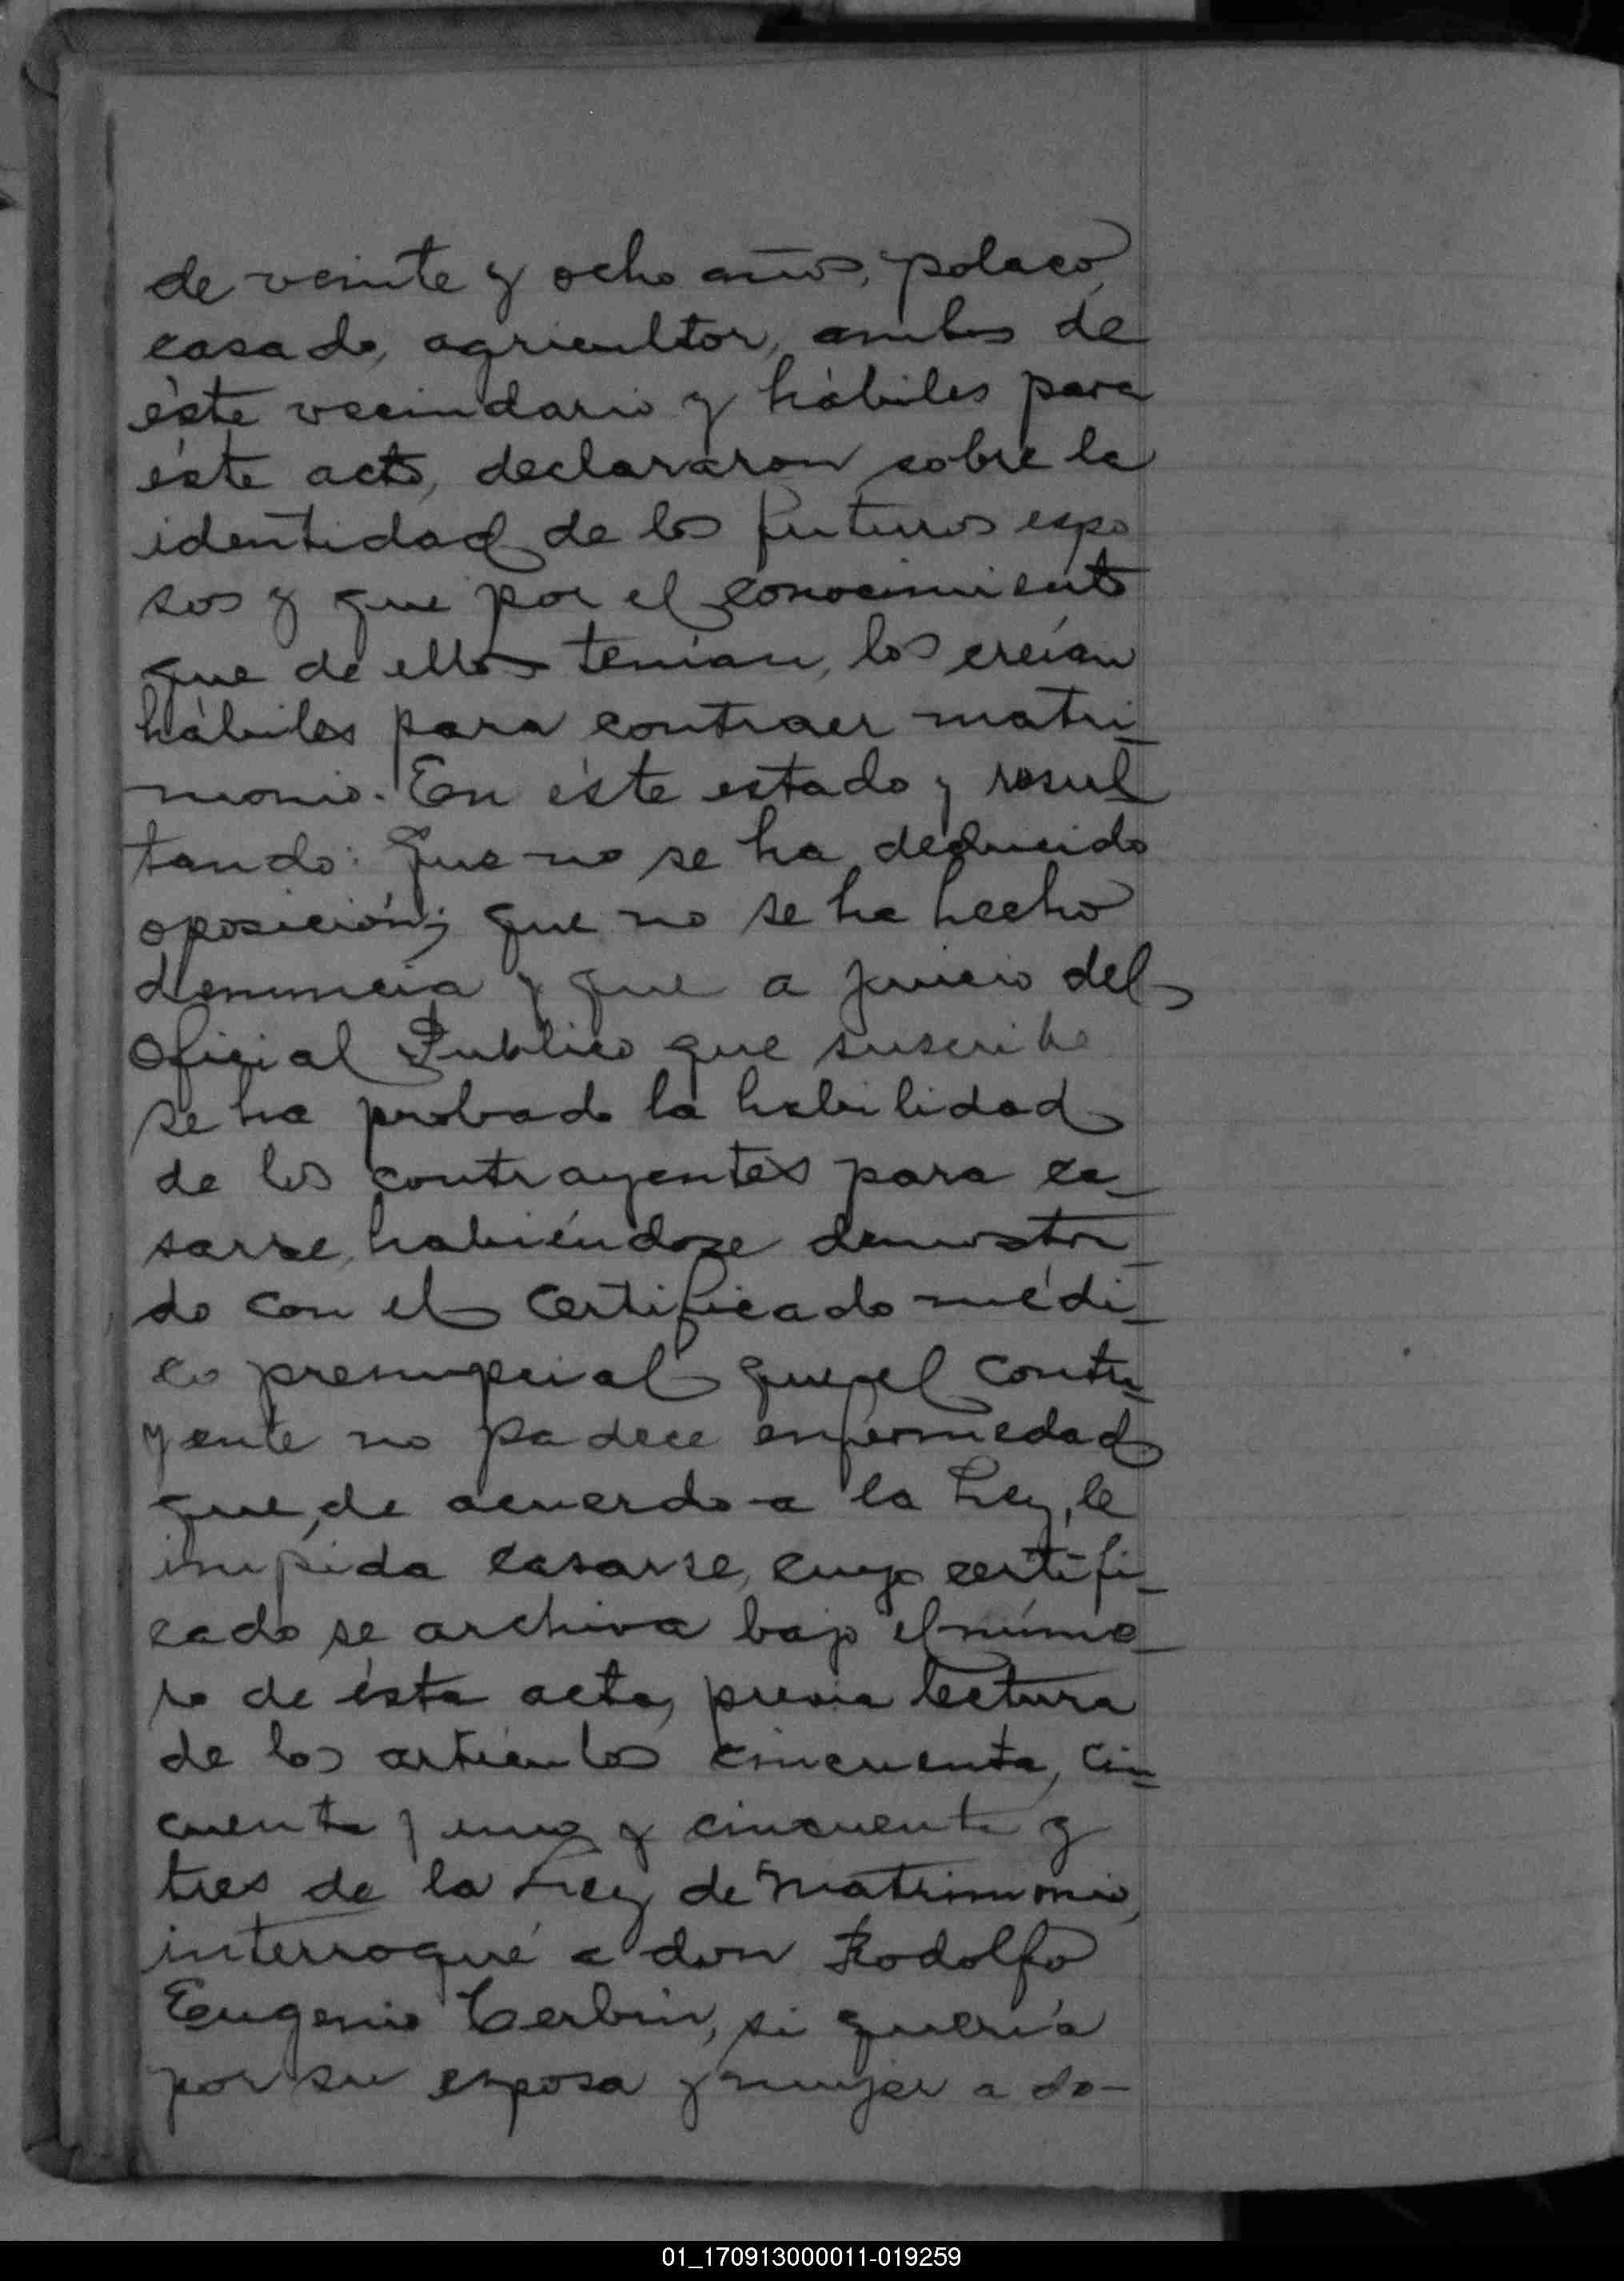 de veinte y ocho años, polaco,
casado, agricultor, ambos de
éste vecindario y hábiles para
éste acto, declararon sobre la
identidad de los futuros espo
sos y que por el conocimiento
que de ellos tenían, los creían
hábiles para contraer matri_
monio. En éste estado y resul
tando: Que no se ha deducido
oposición; que no se ha hecho
denuncia y que a juicio del
Oficial Publico que suscribe
se ha probado la habilidad
de los contrayentes para ca_
sarse, habiéndose demostra_
do con el certificado médi_
co prenupcial que el contra_
yente no padece enfermedad
que, de acuerdo a la Ley, le
impida casarse, cuyo certifi_
cado se archiva bajo el núme_
ro de ésta acta, previa lectura
de los artículos cincuenta, cin_
cuenta y uno y cincuenta y
tres de la Ley de Matrimonio,
interrogué a don Rodolfo
Eugenio Cerbin, si quería
por su esposa y mujer a do-
01_170913000011-019259